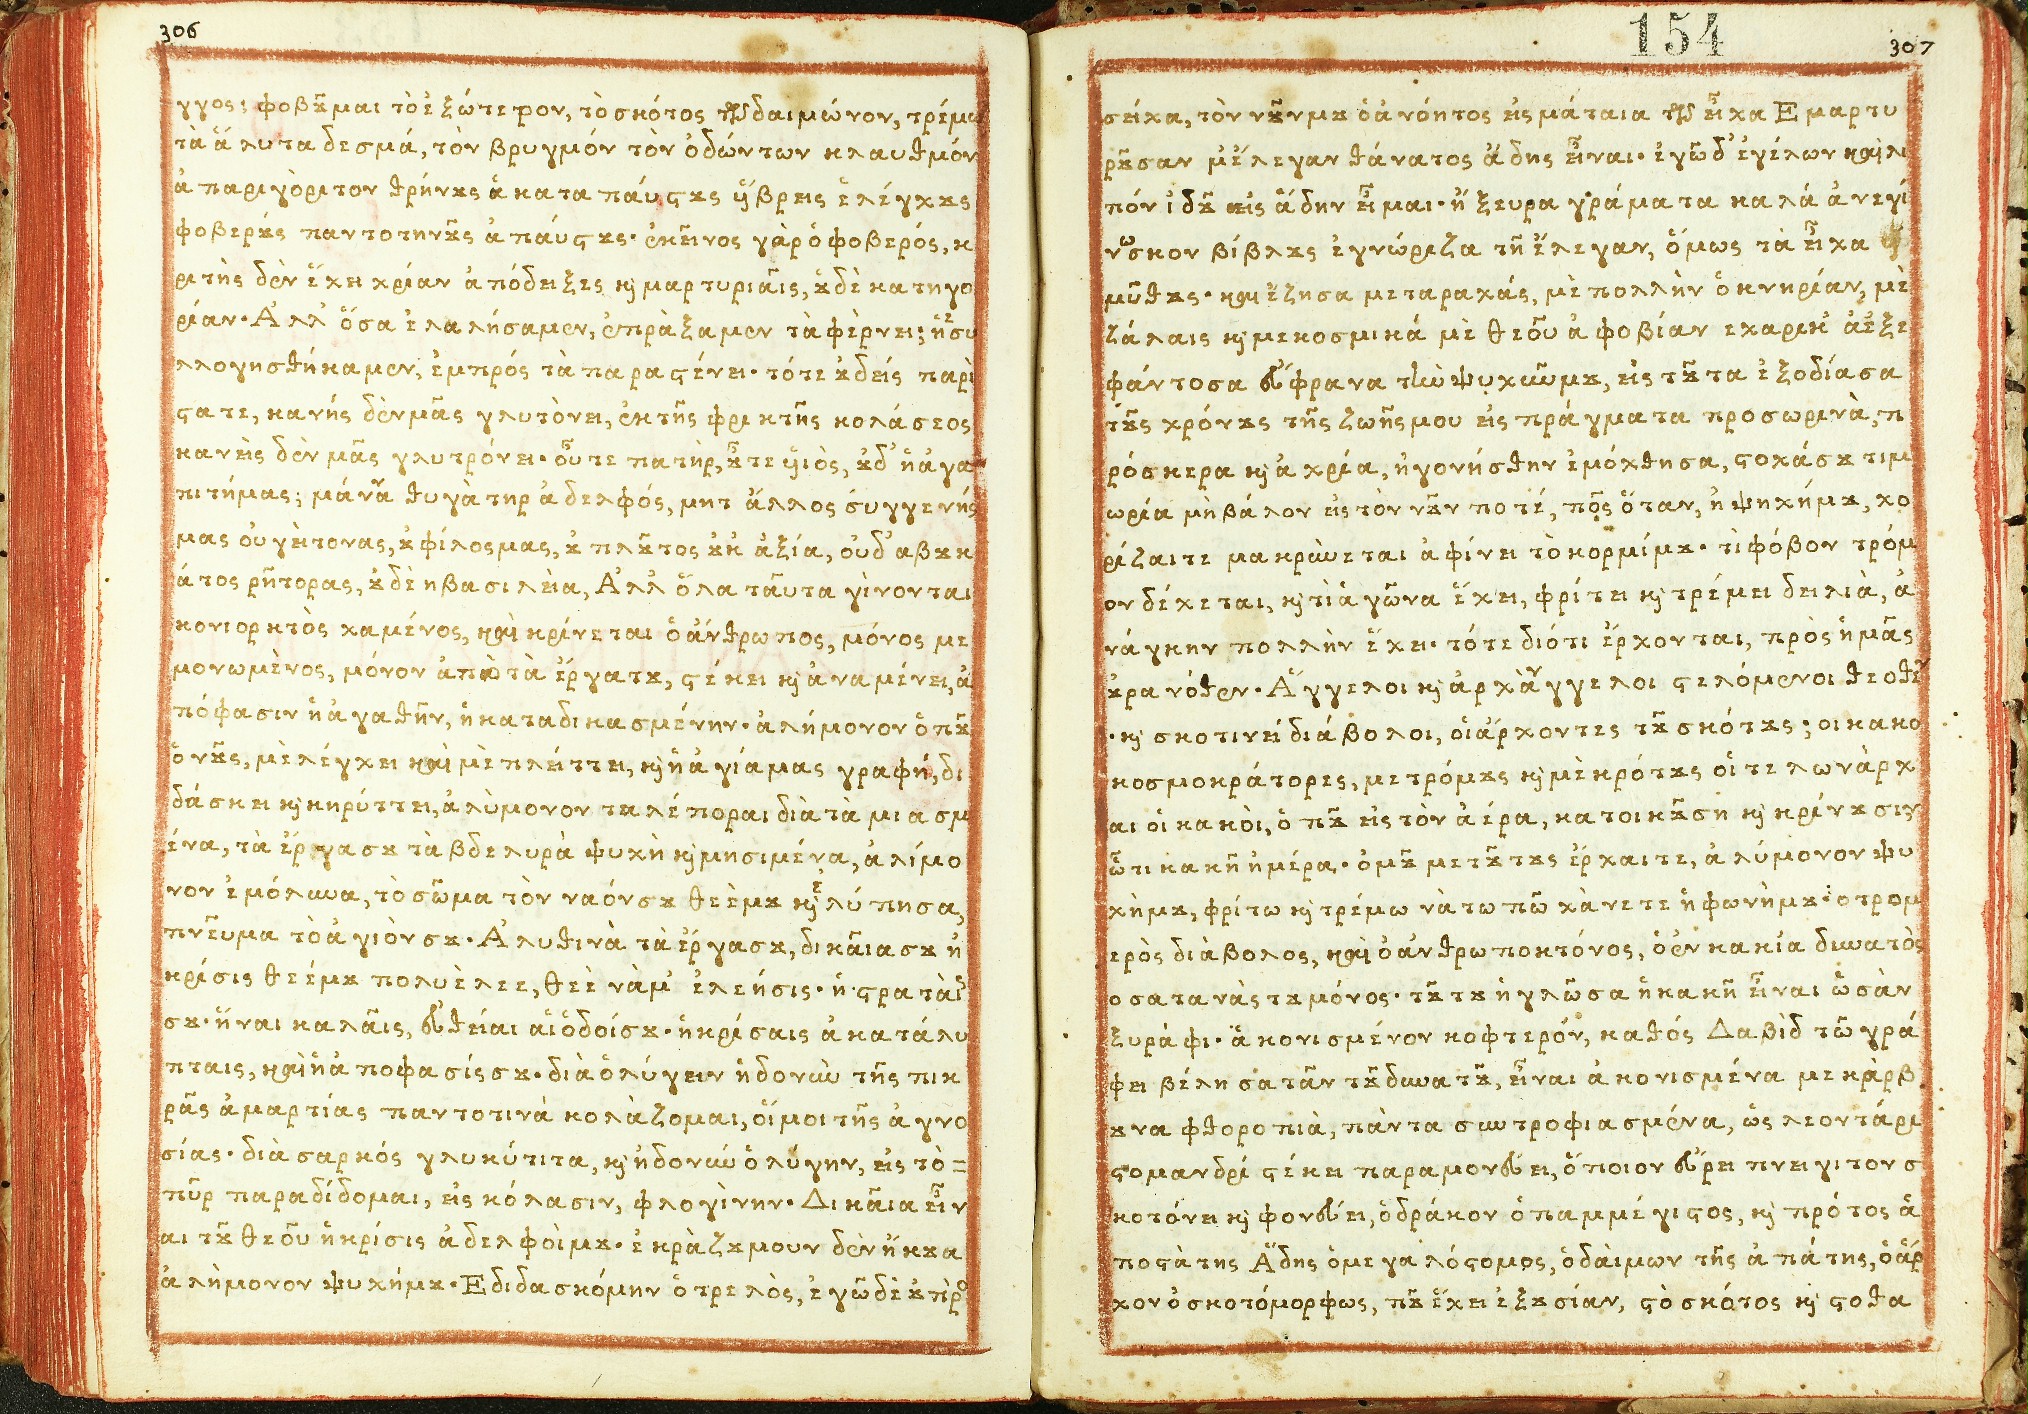 306
γγος; φοβȣ͂μαι τὸ ἐξώτερον, τὸ σκότος τῶν δαιμώνον, τρέμω
τὰ ἄλυτα δεσμά, τὸν βρυγμόν τὸν ὀδώντων κλαυθμόν
ἀπαριγὸριτον θρήνȣς ἀκαταπάυςȣς ὕβρεις ἐλέγχȣς
φοβερȣ́ς παντοτηνȣ̀ς ἀπάυςȣς· ἐκεῖνος γὰρ ὁ φοβερός, κ
ριτὴς δὲν ἔχει χρίαν ἀπόδειξες κ̣ μαρτυριαῖς, ȣ̓δὲ κατηγο
ρίαν· Ἀλλ' ὅσα ἐλαλήσαμεν, ἐπράξαμεν τὰ φέρνει; ἢ ἐσυ
λλογησθήκαμεν, ἐμπρός τὰ παραςένει· τότε ȣ̓δείς παρὶ
ςατε, κανής δὲν μᾶς γλυτὸνει, ἐκ τῆς φρικτῆς κολάσεος
κανεὶς δὲν μᾶς γλυτρόνει· οὖτε πατὴρ, ȣ̓͂τε ὑιὸς, ȣ̓δ' ἡ ἀγα
πιτήμας; μάννα θυγὰτηρ ἀδελφός, μητ ἄλλος συγγενής
μας οὐ γείτονας, ȣ̓ φίλος μας, ȣ̓ πλȣ͂τος ȣ̓κ ἀξία, οὐδ' αβȣκ
άτος ρῆτορας, ȣ̓δὲ η βασιλεία, Ἀλλ' ὅλα ταῦτα γίνονται
κονιορκτὸς χαμένος, καὶ κρίνεται ὁ ἄνθρωπος, μόνος με
μονωμὲνος, μόνον ἀπὸ τὰ ἔργατȣ, ςέκει κ̣ ἀναμένει, ἀ
πόφασιν ἢ ἀγαθῆν, ἢ καταδικασμένην· ἀλήμονον ὁπȣ͂
ὁ νȣ͂ς, μὲ λέγχει καὶ μὲ πλείττει, κ̣ ἡ ἁγίαμας γραφή, δι
δάσκει κ̣ κηρύττει, ἀλὺμονον ταλέποραι διὰ τὰ μιασμ
ένα, τὰ ἔργασȣ τὰ βδελυρὰ ψυχὴ κ̣ μησιμένα, ἀλίμο
νον ἐμόλυνα, τὸ σῶμα τὸν ναόνσȣ θεέμȣ κ̣ ἐλύπησα,
πνεῦμα τὸ ἁγιόνσȣ· Ἀλυθινὰ τὰ ἔργασȣ, δικαῖασȣ ἡ
κρίσις θεέμȣ πολυὲλεε, θεὲ νὰμ' ἐλεήσις· ἡ ςρατὰι
σȣ· ἦναι καλαῖς, ἐυθείαι αἱ ὁδοίσȣ· ἡ κρίσαις ἀκατάλυ
πταις, καὶ ἡ ἀποφασίςσȣ· διὰ ὀλύγειν ἡδονὺν τῆς πικ
ρᾶς ἁμαρτίας παντοτινὰ κολὰζομαι, οἴμοι τῆς ἀγνο
σίας· διὰ σαρκός γλυκύτιτα, κ̣ ἡδονὺν ὀλύγην, εἰς τὸ=
πῦρ παραδίδομαι, εἰς κόλασιν, φλογὶνην· Δικαῖα εἶν
αι τȣ͂ θεοῦ ἡ κρίσις ἀδελφοὶμȣ· ἐκρὰζȣμουν δὲν ἤκȣα
ἀλὴμονον ψυχήμȣ· Εδιδασκόμην ὁ τρελὸς, ἐγῶ δὲ ȣ̓ πρ̀ο
154
307
σείχα, τὸν νȣ͂νμȣ ὁ ἀνόητος εἰς μάταια τὸν εἶχα Εμαρτυ
ρȣ͂σαν μ' ἔλεγαν θάνατος ἅδης εἶναι· ἐγῶ δ' ἐγέλων καὶ λι
πόν ἰδȣ εἰς ἅδην εἶμαι· ἤξευρα γράματα καλά ἀνεγί
νωσκον βίβλȣς ἐγνώριζα τῆ ἔλεγαν, ὅμως τὰ εἶχα
μῦθȣς· καὶ ἔζησα με ταραχάς, μὲ πολλὴν ὀκνηρίαν, μὲ
ζάλαις κ̣ με κοσμικά μὲ θεοῦ ἀφοβίαν εχαρικ' ἀέξε
φάντοσα ἐύφρανα τὴν ψυχὴνμȣ, εἰς τȣ͂τα ἐξοδίασα
τȣ̀ς χρόνȣς τῆς ζωῆςμου εἰς πράγματα προσωρινὰ, π
ρόσκερα κ̣ ἀχρία, ἠγονήσθην ἐμόχθησα, ςοχάσȣ τιμ
ωρία μὴ βάλον εἰς τὸν νȣ͂ν ποτέ, πῶς ὅταν, ἡ ψηχήμȣ, χο
ρίζαιτε μακρὰυεται ἀφίνει τὸ κορμίμȣ· τι φόβον τρόμ
ον δέχεται, κ̣ τὶ ἀγῶνα ἔχει, φρίτει κ̣ τρέμει δειλιὰ, ἀ
νάγκην πολλὴν ἔχει· τότε διότι ἔρχονται, πρὸς ἡμᾶς
ȣ̓ρανόθεν· Ἄγγελοι κ̣ ἀρχὰγγελοι ςελόμενοι θεόθεν
·κ̣ σκοτινεί διάβολοι, οἱ ἄρχοντες τȣ͂ σκότȣς; οι κακο
κοσμοκράτορες, με τρόμȣς κ̣ μὲ κρότȣς οἱ τελωνὰρχ
αι οἱ κακὸι, ὁπȣ͂ εἰς τὸν ἀέρα, κατοικȣ͂ση κ̣ κρίνȣσιν
ὦ τι κακῆ ἡμέρα· ὁμȣ͂ μετȣ͂τȣς ἔρχαιτε, ἀλύμονον ψυ
χὴμȣ, φρίτω κ̣ τρέμω νὰ τω πῶ χὰνετε ἡ φωνὴμȣ· ὁ τρομ
ερὸς διάβολος, καὶ ὁ ἀνθρωποκτόνος, ὁ ἐν κακία δυνατὸς
ο σατανὰς τȣ μόνος· τȣ͂τȣ ἡ γλῶσα ἡ κακῆ εἶναι ὦσὰν
ξυράφι· ἀκονισμένον κοφτερόν, καθός Δαβὶδ τῶ γρά
φει βέλη σατᾶν τȣ͂ δυνατȣ͂, εἶναι ἀκονισμένα με κὰρβ
ȣνα φθοροπιὰ, πὰντα συντροφιασμένα, ὡς λεοντάρι
ςο μανδρί ςέκει παραμονέυει, ὅποιον ἐύρει πνειγι τον σ
κοτόνει κ̣ φονέυει, ὁ δράκον ὁ παμμέγιςος, κ̣ πρότος ἀ
ποςὰτης Ἅδης ὁ μεγαλόςομος, ὁ δαὶμων τῆς ἀπάτης, ὁ ἄρ
χον ὁ σκοτόμορφως, πȣ͂ ἔχει ἐξȣσίαν, ςὸ σκότος κ̣ ςο θα